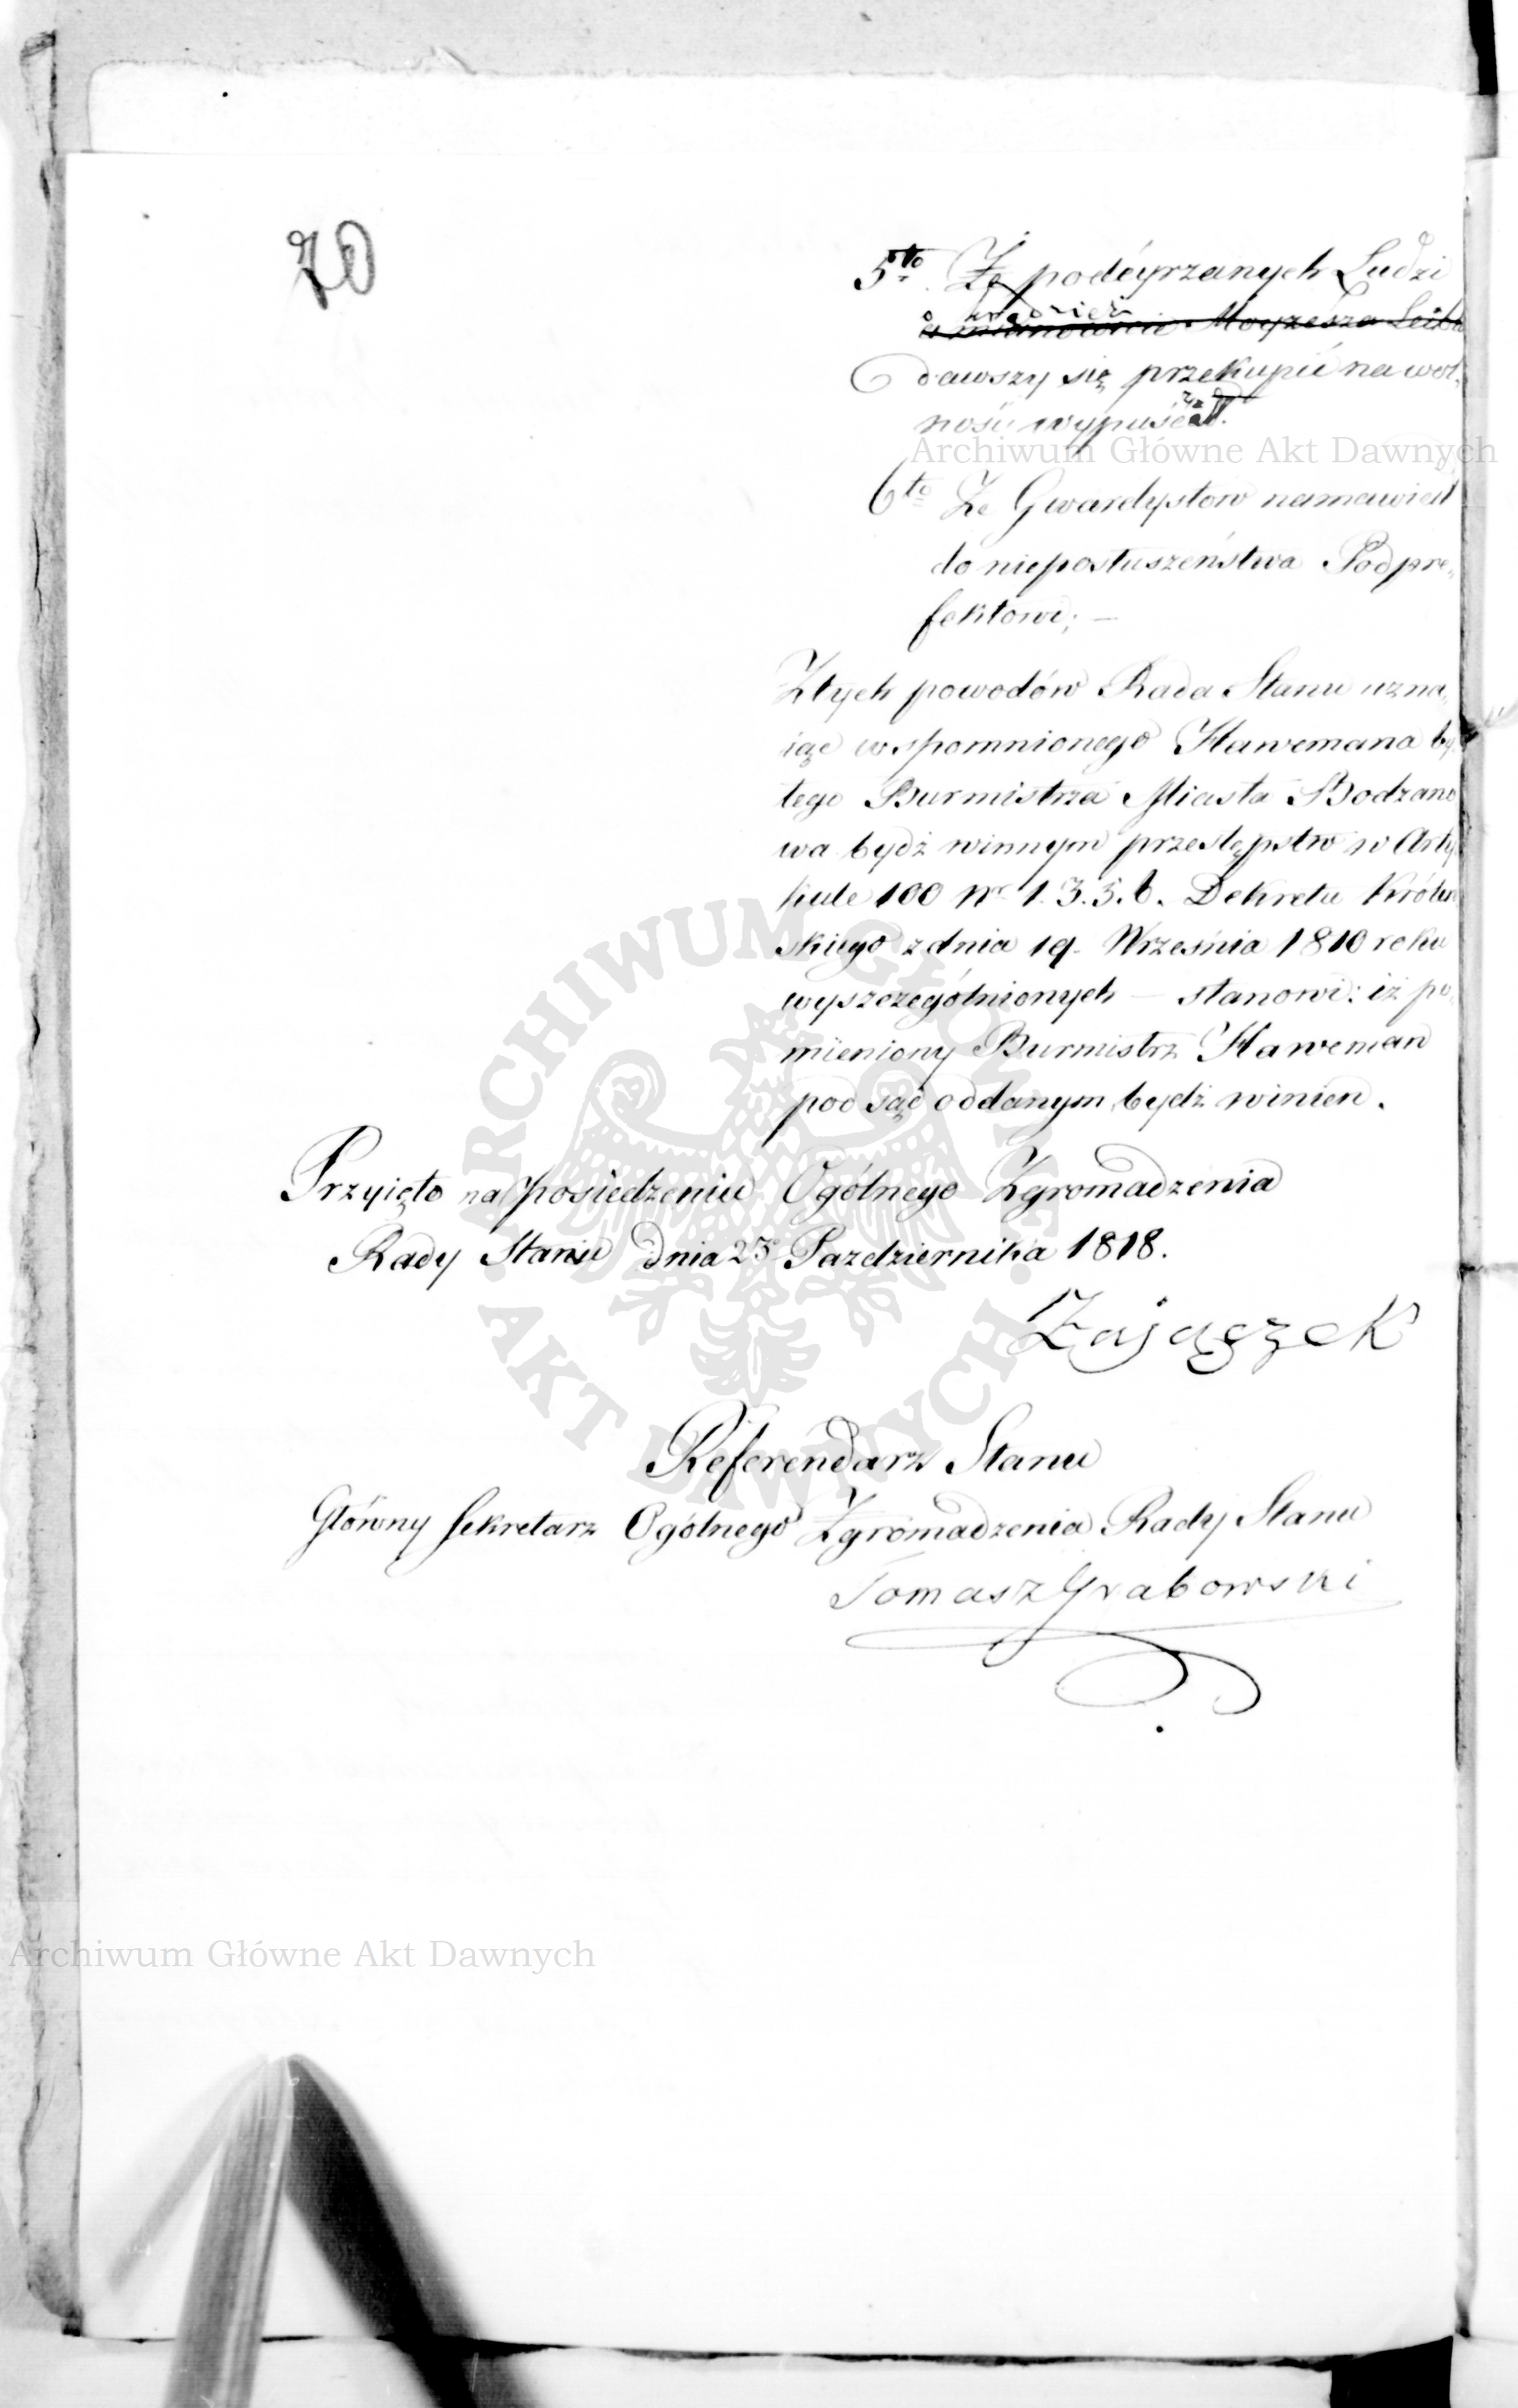 70
5to. Że podeyrzanych Ludzi
o kradzież
a mianowicie Moyżesza Leib
dawszy się przekupić na wol,
ność wypuścił.
6to Że Gwardystow namawiał
do nieposłuszeństwa Podpre,
fektowi; —
Z tych powodów Rada Stanu uzna,
iąc wspomnionego Hawemana by
łego Burmistrza Miasta Bodzano
wa bydź winnym przestępstw w Arty
kule 100 Nr 1. 3. 5. 6. Dekretu Królew
skiego z dnia 19. Września 1810 roku
wyszczególnionych — stanowi: iż po,
mieniony Burmistrz Haweman
pod sąd oddanym bydź winien.
Przyięto na posiedzeniu Ogólnego Zgromadzenia
Rady Stanu dnia 23 Pazdziernika 1818.
Zajączek
Referendarz Stanu
Główny Sekretarz Ogólnego Zgromadzenia Rady Stanu
Tomasz Grabowski
Archiwum Główne Akt Dawnych
Archiwum Główne Akt Dawnych
ARCHIWUM GŁÓWNE
AKT DAWNYCH